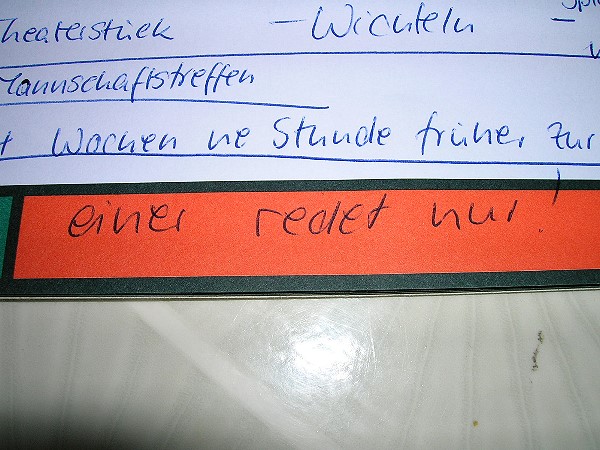 Theaterstück - Wichteln -
Mannschaftstreffen
Wochen ne Stunde früher zur
einer redet nur!